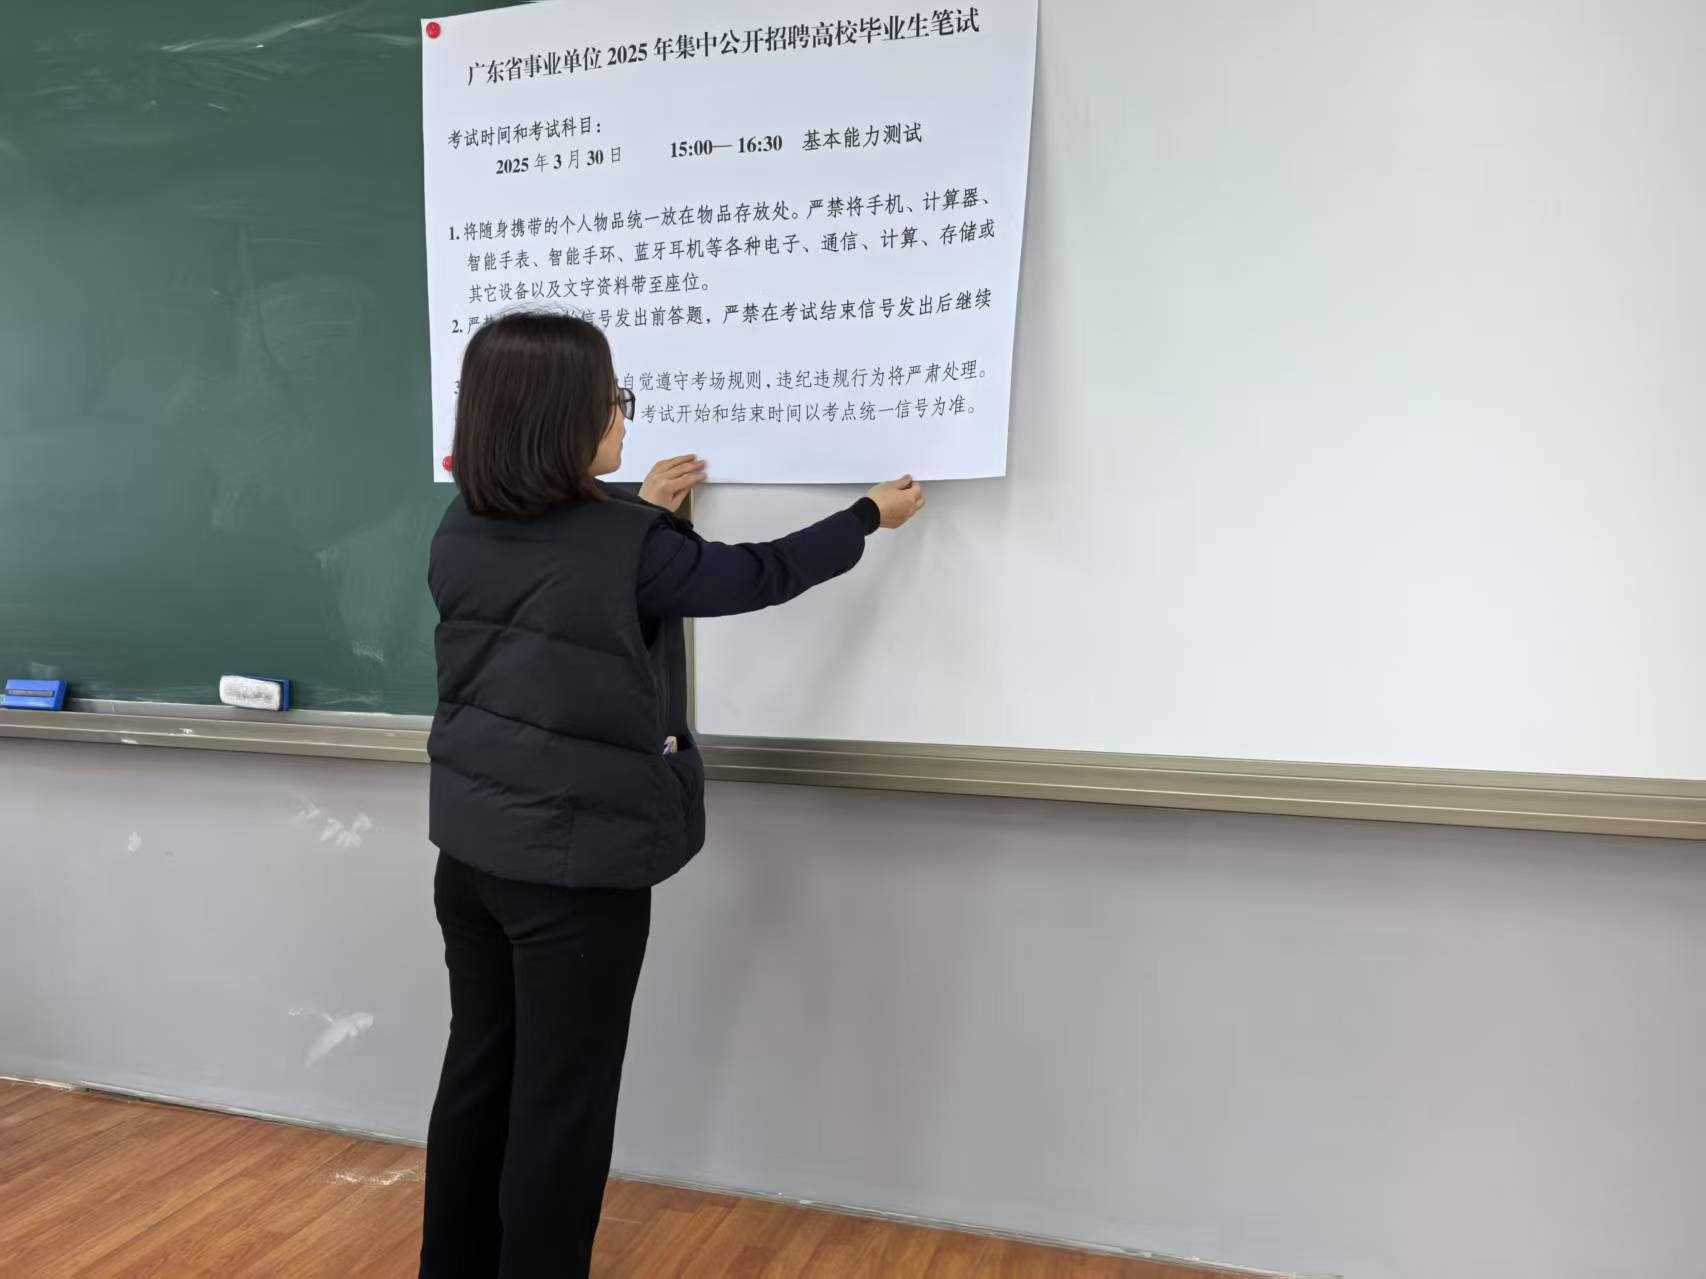 广东省事业单位 2025 年集中公开招聘高校毕业生笔试
考试时间和考试科目：
2025 年 3 月 30 日 15:00— 16:30 基本能力测试
1. 将随身携带的个人物品统一放在物品存放处。严禁将手机、计算器、
智能手表、智能手环、蓝牙耳机等各种电子、通信、计算、存储或
其它设备以及文字资料带至座位。
2. 严 信号发出前答题，严禁在考试结束信号发出后继续
自觉遵守考场规则，违纪违规行为将严肃处理。
考试开始和结束时间以考点统一信号为准。